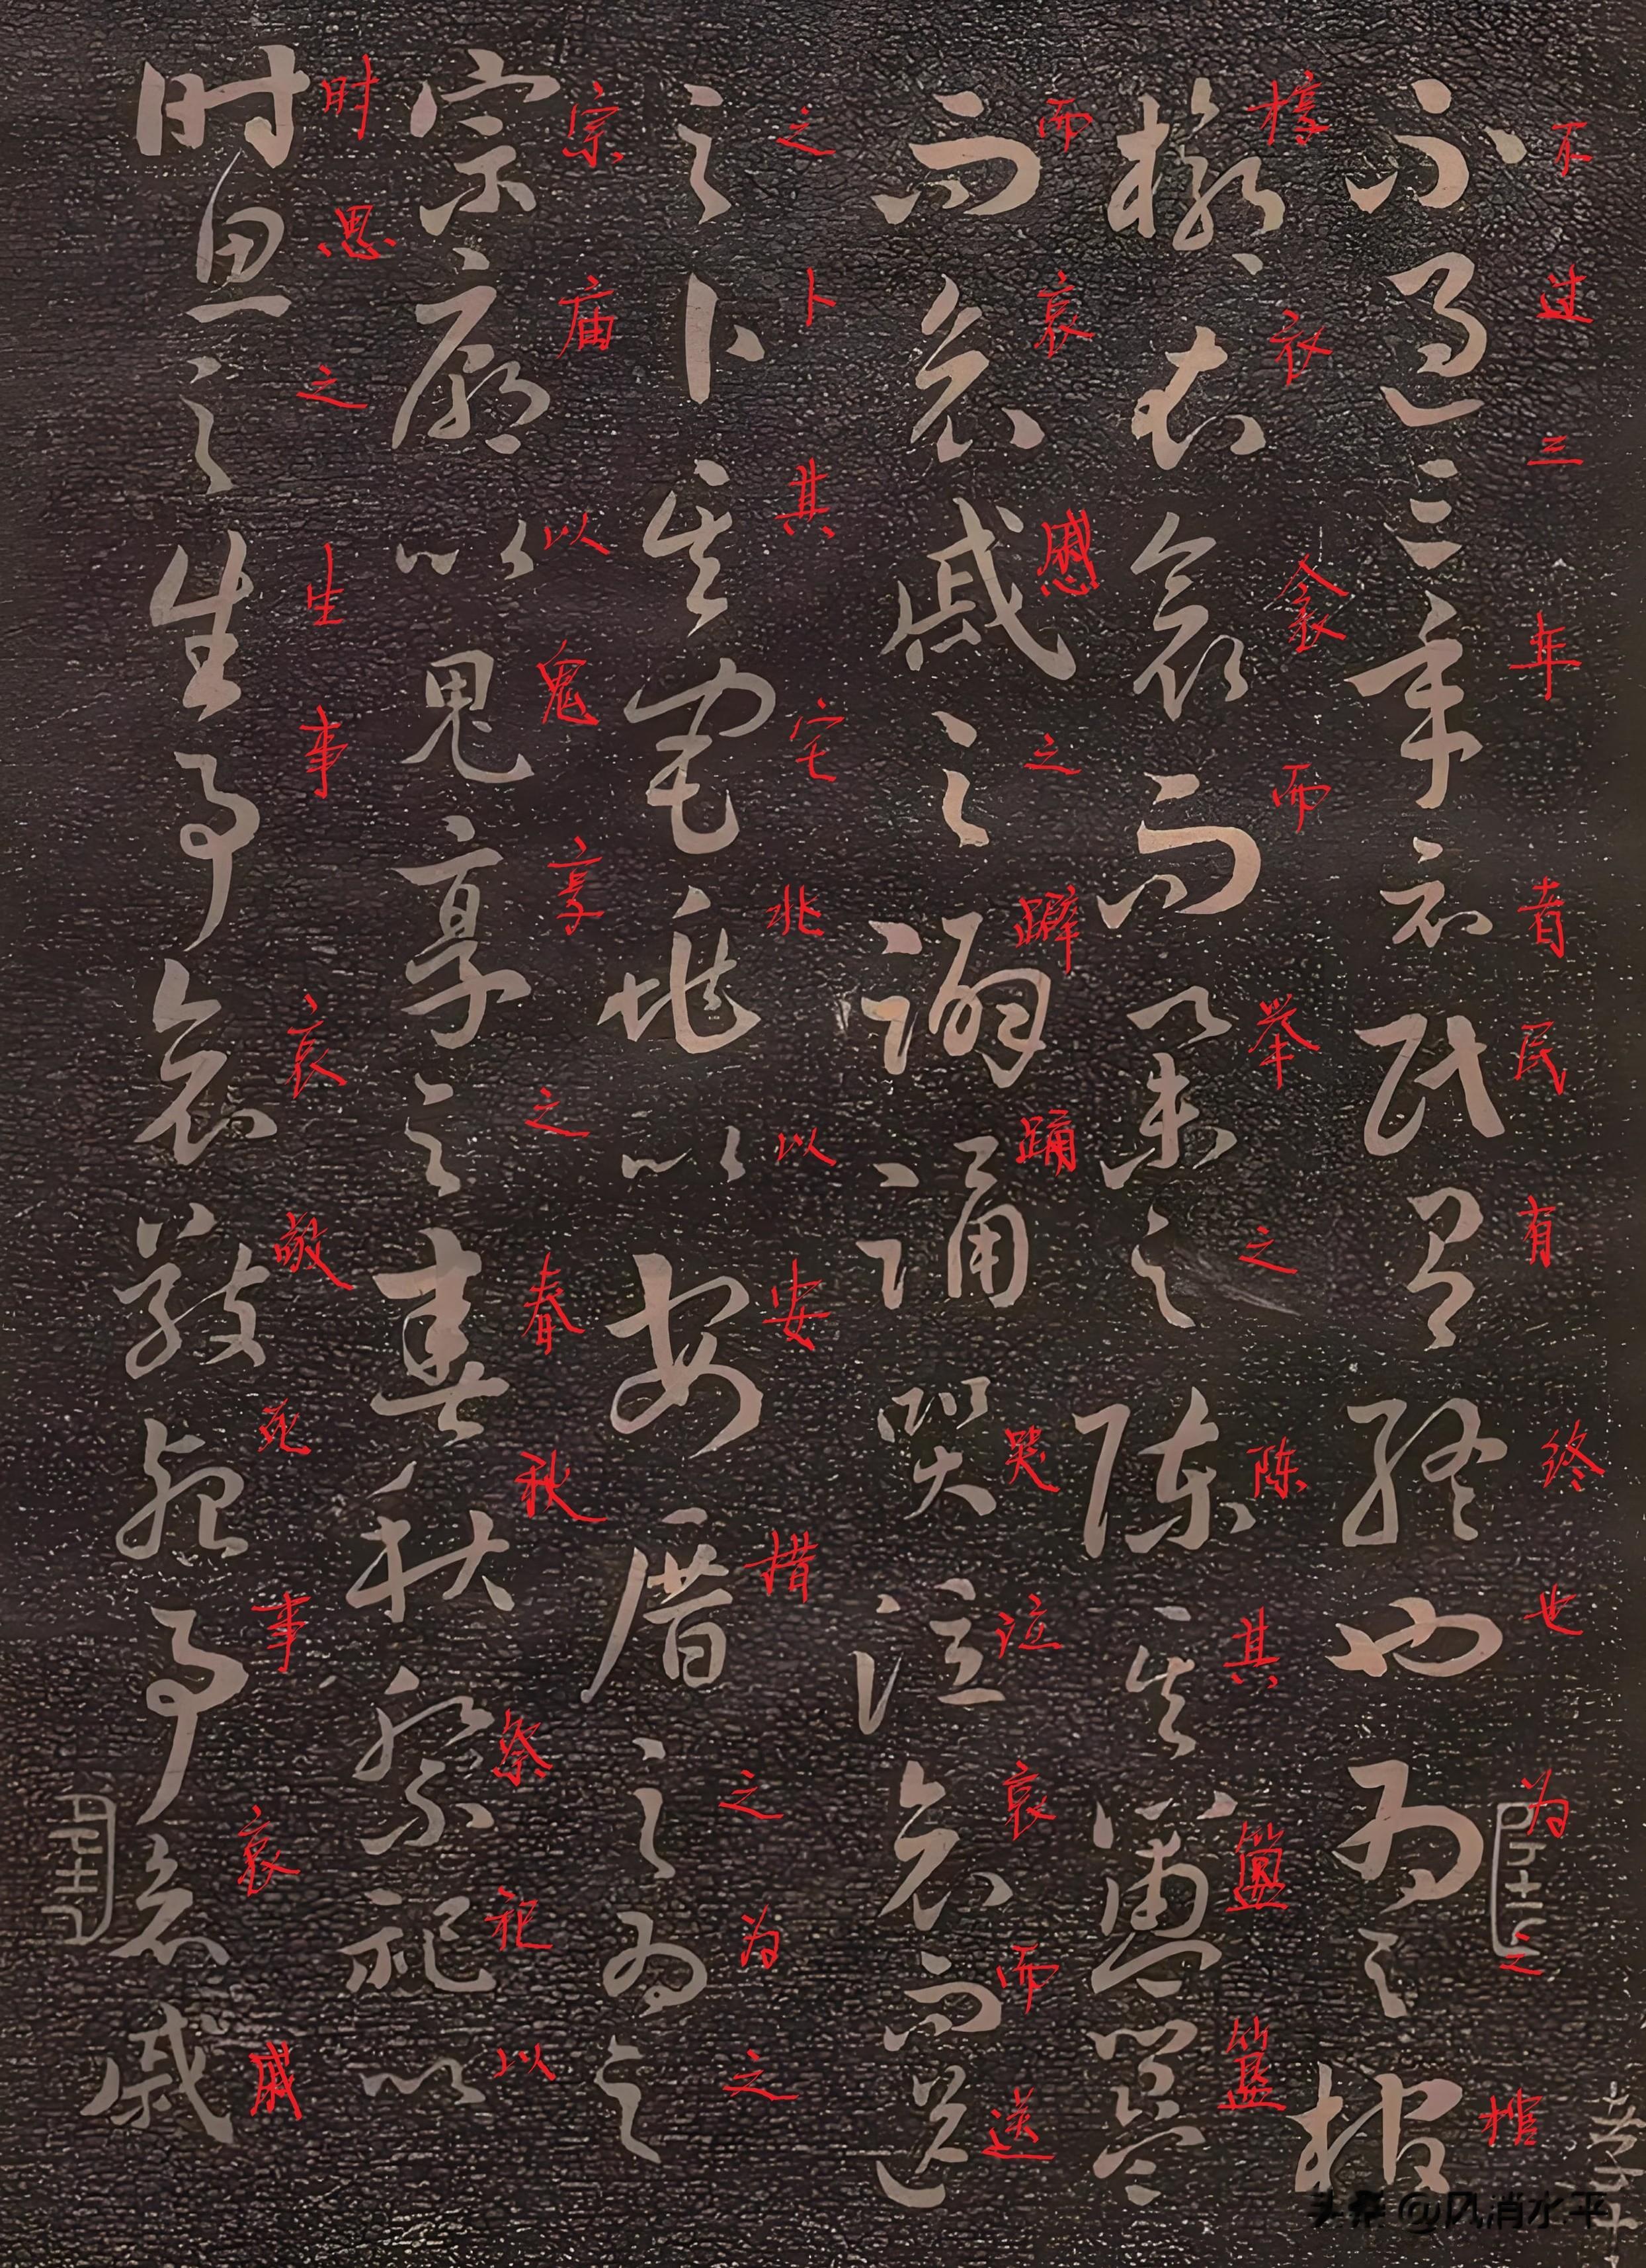 不过三年者民有终也为之棺
不過三年示民有終也為之棺
椁衣衾而举之陈其簠簋
槨衣衾而舉之陳其簠簋
而哀慼之躃踊哭泣哀而送
而哀戚之躃踊哭泣哀而送
之卜其宅兆以安措之为之
之卜其宅兆以安厝之為之
宗庙以鬼享之春秋祭祀以
宗廟以鬼享之春秋祭祀以
时思之生事哀敬死事哀戚
时思之生事哀敬死事哀戚
头条 @风消水平